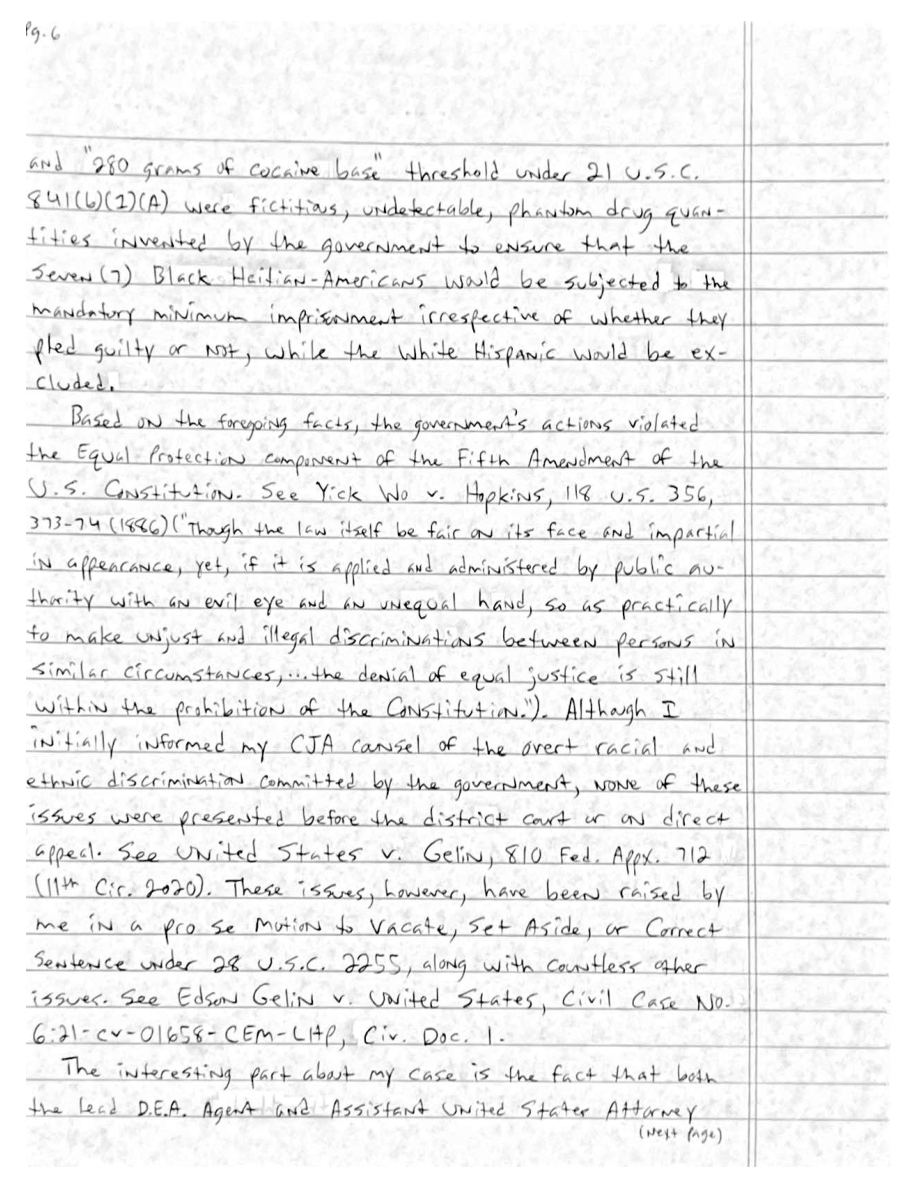 Pg. 6
and "280 grams of cocaine base" threshold under 21 U.S.C.
841(b)(1)(A) were fictitious, undetectable, phantom drug quan-
tities invented by the government to ensure that the
Seven (7) Black Haitian-Americans would be subjected to the
mandatory minimum imprisonment irrespective of whether they
pled guilty or not, while the white Hispanic would be ex-
cluded.
Based on the foregoing facts, the government's actions violated
the Equal Protection component of the Fifth Amendment of the
U.S. Constitution. See Yick Wo v. Hopkins, 118 U.S. 356,
373-74 (1886) ("Though the law itself be fair on its face and impartial
in appearance, yet, if it is applied and administered by public au-
thority with an evil eye and an unequal hand, so as practically
to make unjust and illegal discriminations between persons in
similar circumstances,...the denial of equal justice is still
within the prohibition of the Constitution."). Although I
initially informed my CJA cansel of the overt racial and
ethnic discrimination committed by the government, none of these
issues were presented before the district court or on direct
appeal. See United States v. Gelin, 810 Fed. Appx. 712
(11th Cir. 2020). These issues, however, have been raised by
me in a pro se Motion to Vacate, Set Aside, or Correct
Sentence under 28 U.S.C. 2255, along with countless other
issues. See Edson Gelin v. United States, Civil Case No.
6:21-cv-01658-CEM-LHP, Civ. Doc. 1.
The interesting part about my case is the fact that both
the lead D.E.A. Agent and Assistant United States Attorney
(Next Page)